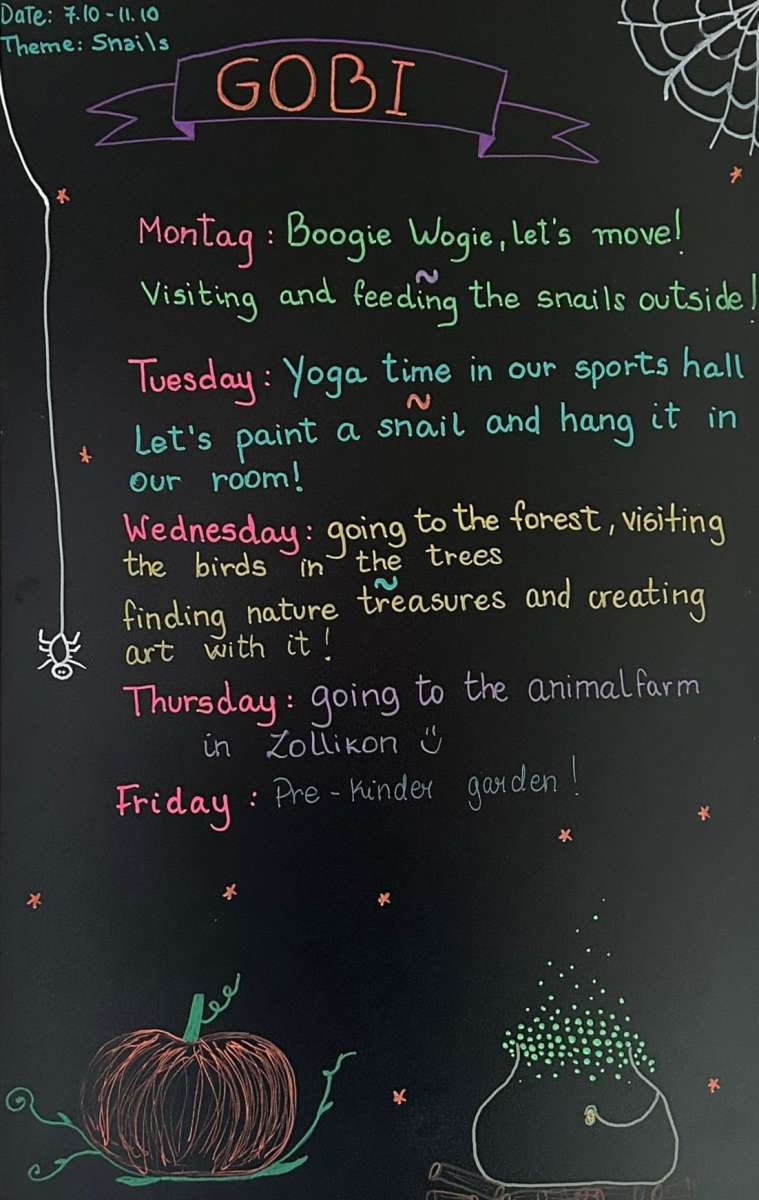 Date: 7.10 - 11.10
Theme: Snails
GOBI
Montag: Boogie Wogie, let's move!
Visiting and feeding the snails outside!
Tuesday: Yoga time in our sports hall
Let's paint a snail and hang it in
our room!
Wednesday: going to the forest, visiting
the birds in the trees
finding nature treasures and creating
art with it!
Thursday: going to the animalfarm
in Zollikon
Friday: Pre-kinder garden!